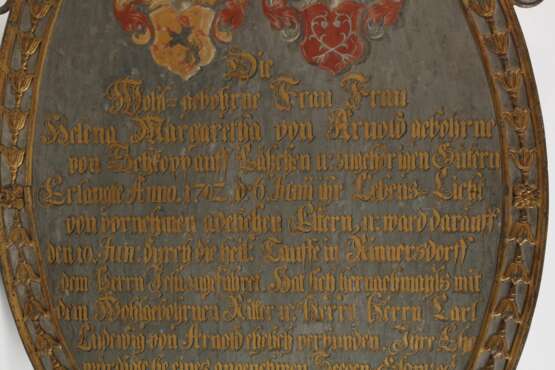 Die
Wohl-gebohrne Frau Frau
Helena Margaretha von Arnold gebohrne
von auff u: zugehörigen Gütern
Erlangte Anno. 1702. d. 6. ihr Lebens-Licht
von vornehmen adelichen Eltern, u. ward darauff
den 10. durch die heil. Tauffe in Rinnersdorff
dem Herrn Jesu zugeführet. Hat sich hernachmahls mit
dem Wohlgebohrnen Ritter u. Herrn Herrn Carl
Ladewig von Arnold ehelich verbunden. Ihre Ehe
eines angenehmen Seegen